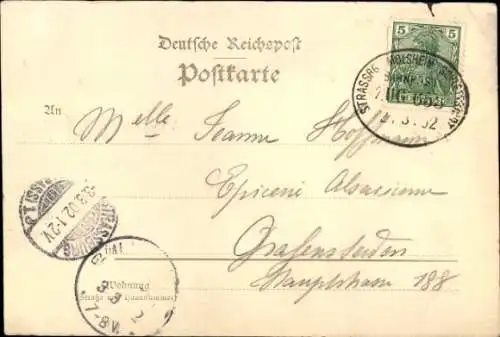 Deutsche Reichspost
Postkarte
5 5
STRASSBG MOLSHEIM
BAHNPOST
ZUG 653
2. 3. 02
An
Melle Jeanne Hoffmann
Epicerie Alsacienne
Grafenstaden
Hauptstrasse 188
STRASSBURG
2.3.02.1-2V.
Wohnung
(Straße und Hausnummer)
7-8V